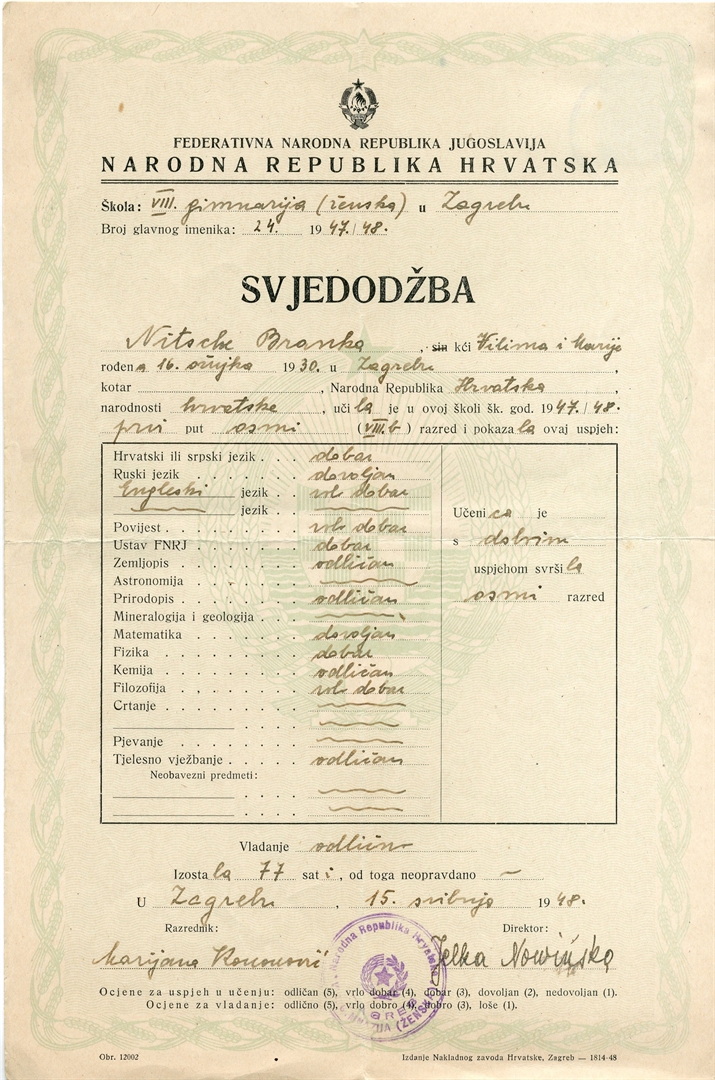 FEDERATIVNA NARODNA REPUBLIKA JUGOSLAVIJA
NARODNA REPUBLIKA HRVATSKA
Škola: VIII. gimnazija (ženska) u Zagrebu
Broj glavnog imenika: 24. 1947./48.
SVJEDODŽBA
Nitsche Branka, sin kći Vilima i Marije
rođena 16. ožujka 1930. u Zagrebu,
kotar , Narodna Republika Hrvatska,
narodnosti hrvatske, učila je u ovoj školi šk. god. 1947./48.
prvi put osmi (VIII.b) razred i pokazala ovaj uspjeh:
Hrvatski ili srpski jezik . . . dobar
Ruski jezik . . . . . . . dovoljan
Engleski jezik . . vrlo dobar
jezik . .
Povijest . . . . . . . . vrlo dobar
Ustav FNRJ . . . . . . . dobar
Zemljopis . . . . . . . . odličan
Astronomija . . . . . . .
Prirodopis . . . . . . . . odličan
Mineralogija i geologija . . .
Matematika . . . . . . . dovoljan
Fizika . . . . . . . . . dobar
Kemija . . . . . . . . . odličan
Filozofija . . . . . . . . vrlo dobar
Crtanje . . . . . . . . .
. . . .
Pjevanje . . . . . . . .
Tjelesno vježbanje . . . . . odličan
Neobavezni predmeti:
Učenica je
s dobrim
uspjehom svršila
osmi razred
Vladanje odlično
Izostala 77 sati, od toga neopravdano –
U Zagrebu, 15. svibnja 1948.
Razrednik: Direktor:
Marijana Jelka Nowińska
Narodna Republika Hrvatska
ZAGREB
(ŽENSKA)
Ocjene za uspjeh u učenju: odličan (5), vrlo dobar (4), dobar (3), dovoljan (2), nedovoljan (1).
Ocjene za vladanje: odlično (5), vrlo dobro (4), dobro (3), loše (1).
Obr. 12002 Izdanje Nakladnog zavoda Hrvatske, Zagreb — 1814-48